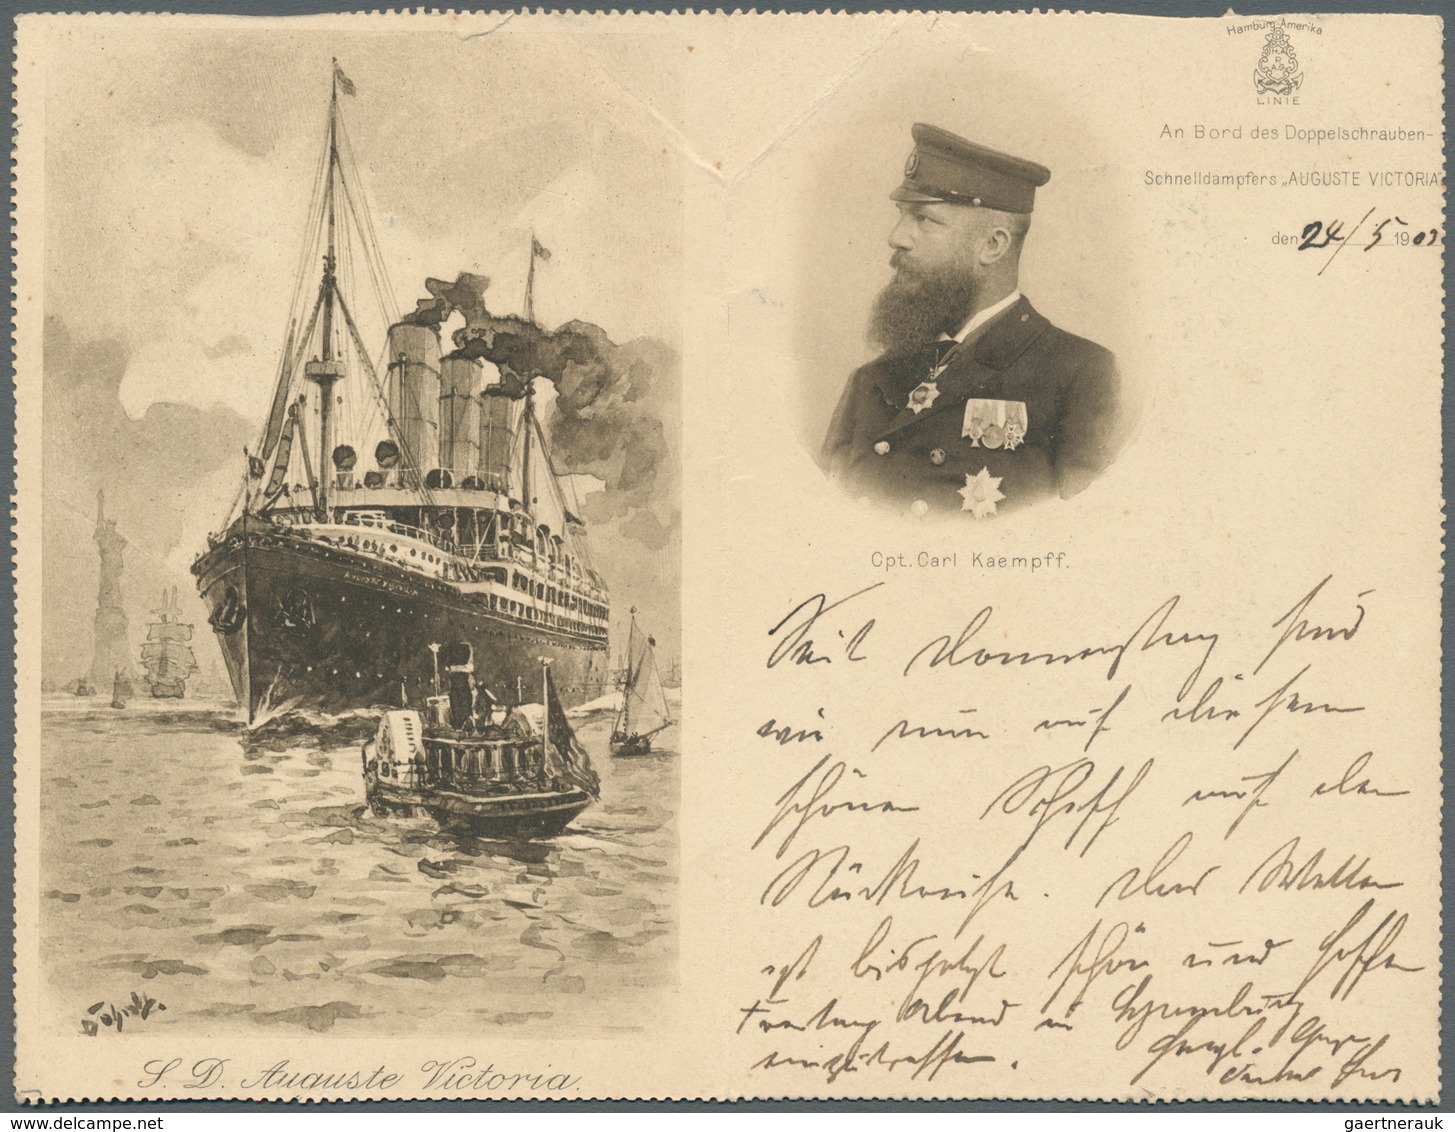 Hamburg-Amerika
H.A.
P.
A.G.
LINIE
An Bord des Doppelschrauben-
Schnelldampfers „AUGUSTE VICTORIA"
den 24/5 190
Cpt. Carl Kaempff.
Seit Donnerstag sind
wir nun auf diesem
schönen Schiff auf der
Rückreise. Das Wetter
ist bis jetzt schön und hoffen
Freitag Abend in Hamburg
einzutreffen. Herzl.
AUGUSTE VICTORIA
S. D. Auguste Victoria.
www.delcampe.net
gaertnerauk